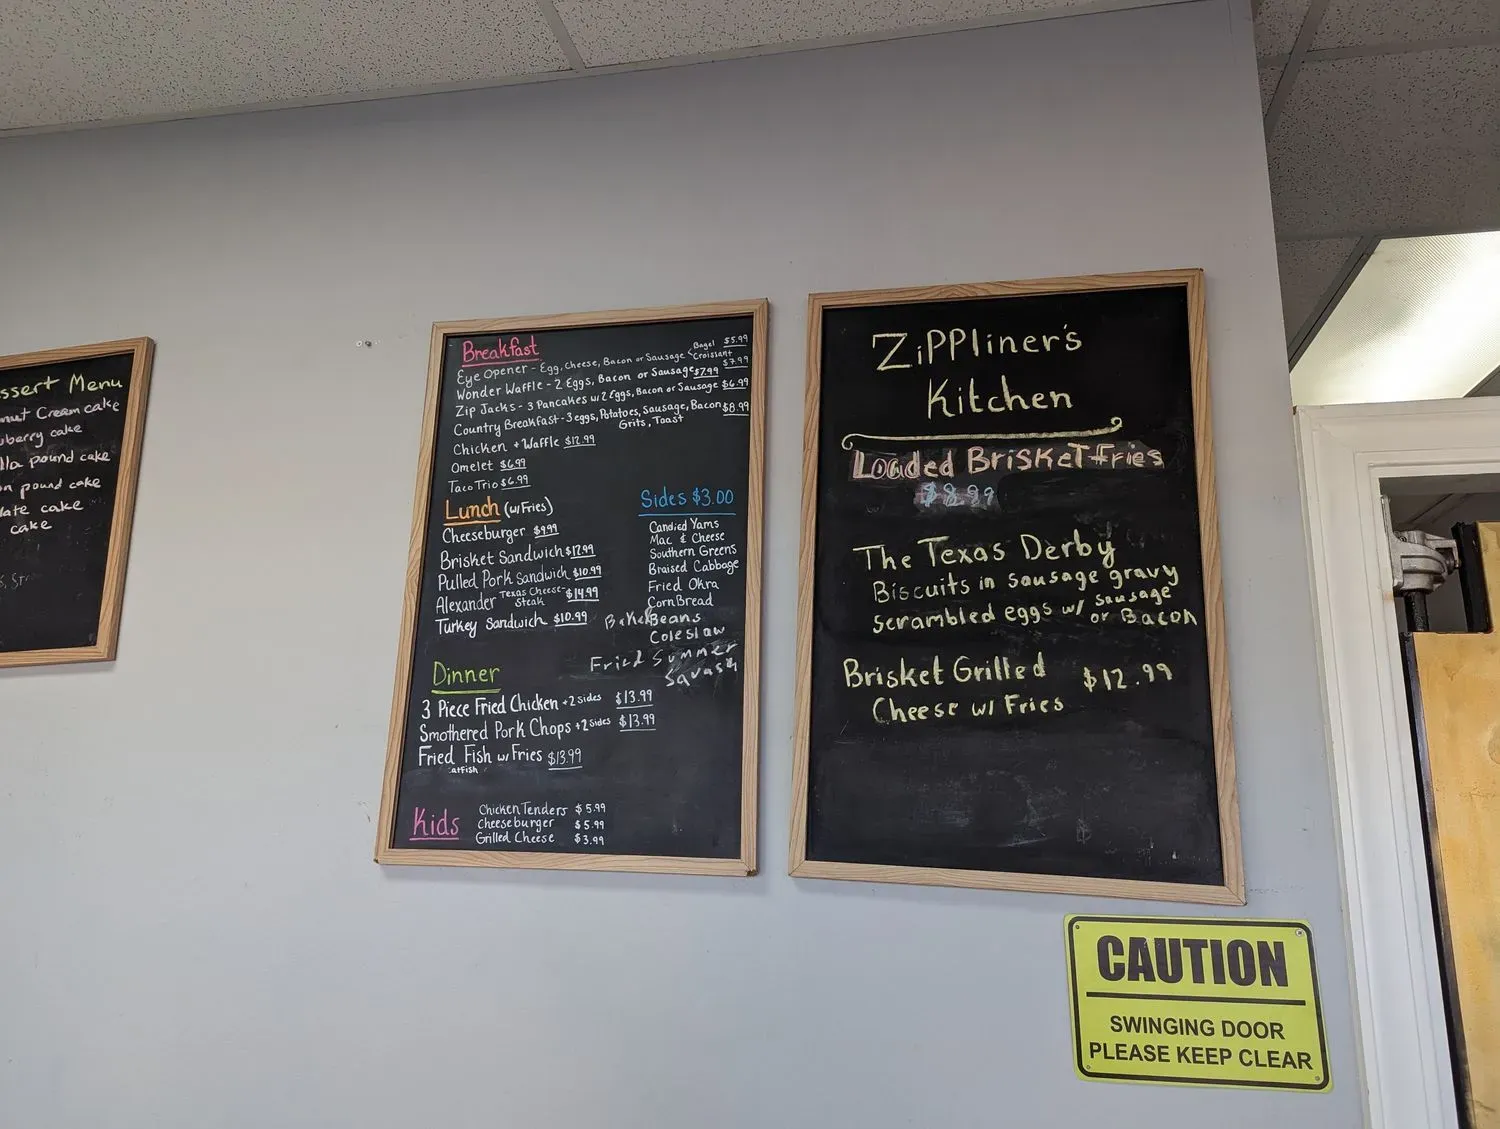 ssert Menu
nut Cream cake
wberry cake
lla pound cake
n pound cake
late cake
cake
Breakfast
Eye Opener - Egg, Cheese, Bacon or Sausage < Bagel $5.99
Croissant $7.99
Wonder Waffle - 2 Eggs, Bacon or Sausage $7.99
Zip Jacks - 3 Pancakes w/ 2 Eggs, Bacon or Sausage $6.99
Country Breakfast - 3 eggs, Potatoes, Sausage, Bacon $8.99
Grits, Toast
Chicken + Waffle $12.99
Omelet $6.99
Taco Trio $6.99
Lunch (w/ Fries)
Cheeseburger $9.99
Brisket Sandwich $12.99
Pulled Pork Sandwich $10.99
Alexander Texas Cheese-Steak $14.99
Turkey Sandwich $10.99
Sides $3.00
Candied Yams
Mac & Cheese
Southern Greens
Braised Cabbage
Fried Okra
Corn Bread
Baked Beans
Coleslaw
Fried Summer
Squash
Dinner
3 Piece Fried Chicken +2 sides $13.99
Smothered Pork Chops +2 sides $13.99
Fried Fish w/ Fries $13.99
atfish
Kids
Chicken Tenders $5.99
Cheeseburger $5.99
Grilled Cheese $3.99
ZiPPliner's
Kitchen
Loaded Brisket Fries
$8.99
The Texas Derby
Biscuits in sausage gravy
scrambled eggs w/ sausage
or Bacon
Brisket Grilled $12.99
Cheese w/ Fries
CAUTION
SWINGING DOOR
PLEASE KEEP CLEAR